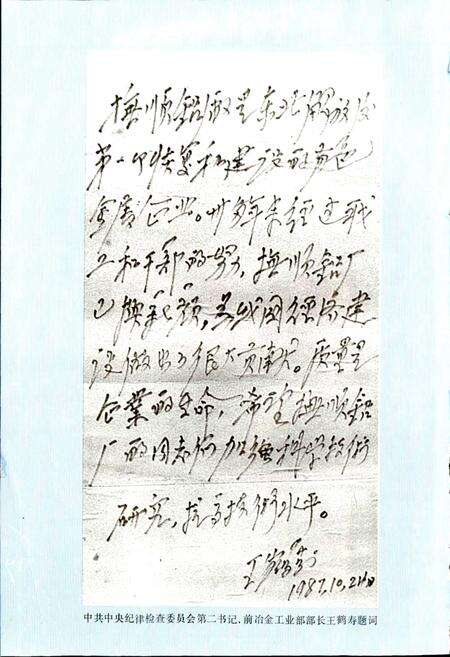 抚顺铝厂是东北解放后
第一个恢复和建设的有色
金属企业。卅多年来经过职
工和干部的努力，抚顺铝厂
已换新颜，为我国经济建
设做出了很大贡献。质量是
企業的生命，希望抚顺铝
厂的同志们加强科学技术
研究，提高技术水平。
王鹤寿
1987.10.21日
中共中央纪律检查委员会第二书记、前冶金工业部部长王鹤寿题词